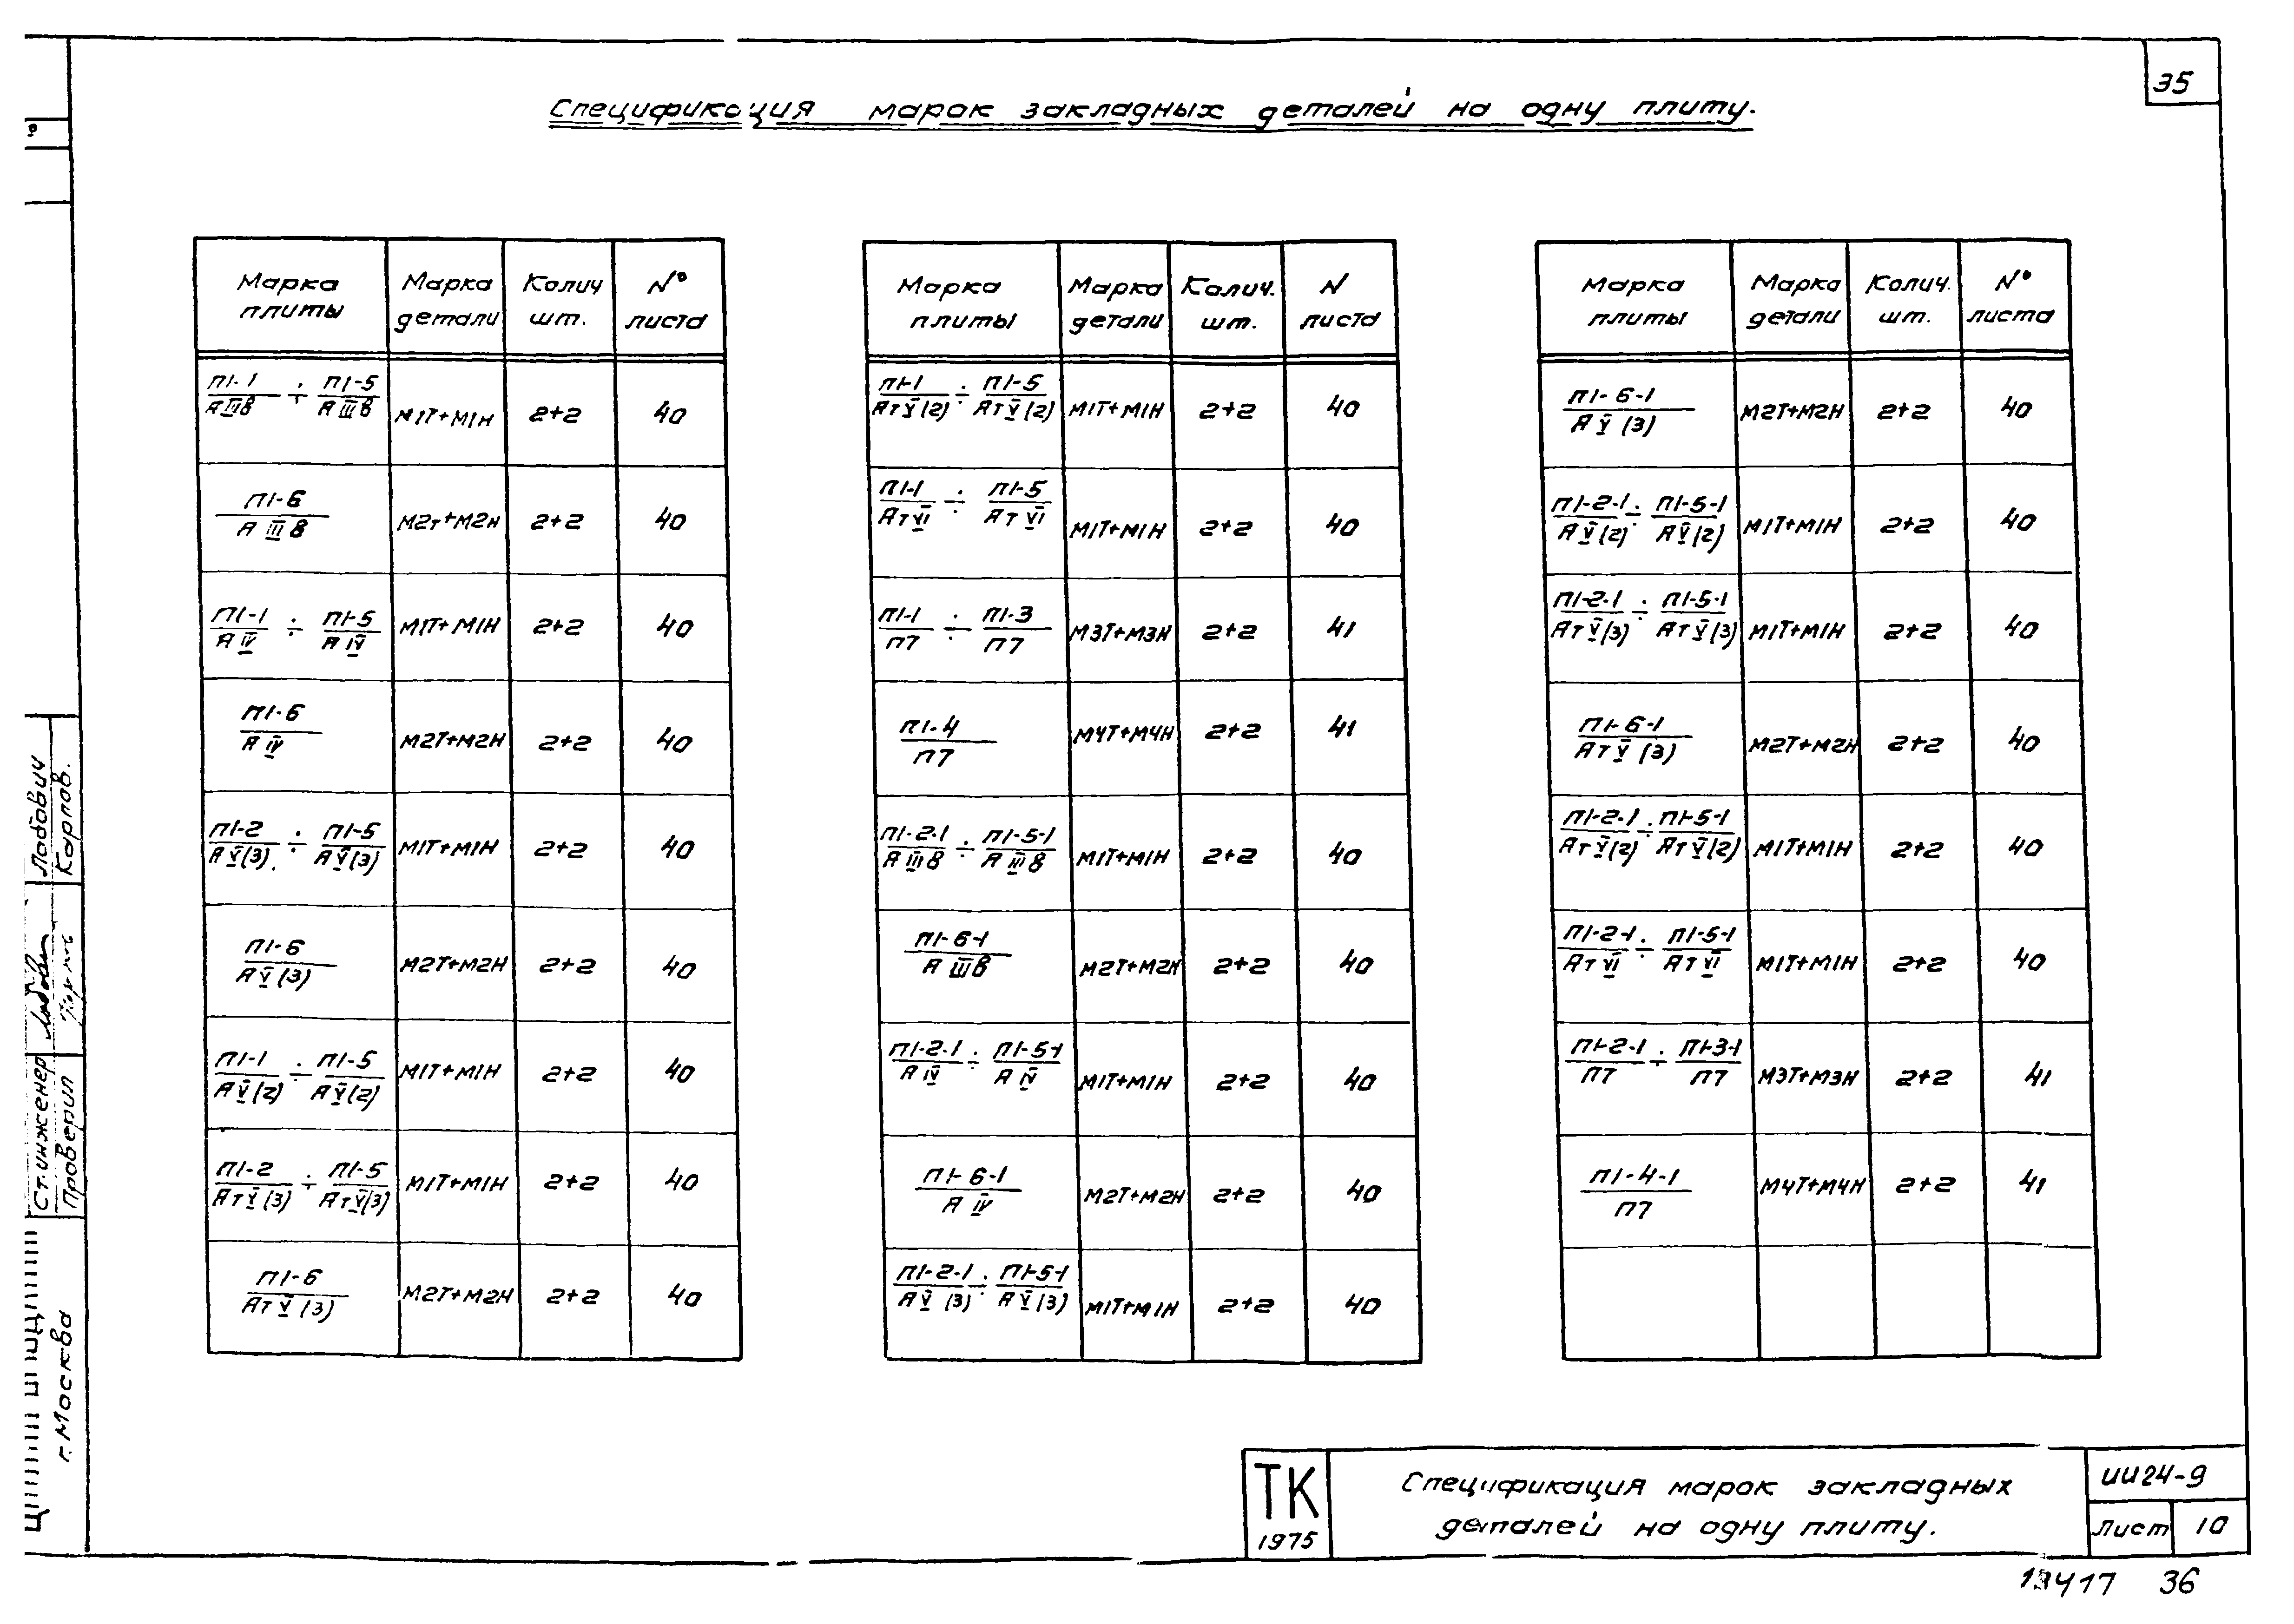 35
Спецификация марок закладных деталей на одну плиту.
Марка плиты | Марка детали | Колич шт. | N° листа
П1-1/АIIIв ÷ П1-5/АIIIв | М1Т+М1Н | 2+2 | 40
П1-6/АIIIв | М2т+М2н | 2+2 | 40
П1-1/АIV ÷ П1-5/АIV | М1Т+М1Н | 2+2 | 40
П1-6/АIV | М2Т+М2Н | 2+2 | 40
П1-2/АV(3). ÷ П1-5/АV(3) | М1Т+М1Н | 2+2 | 40
П1-6/АV(3) | М2Т+М2Н | 2+2 | 40
П1-1/АV(2) ÷ П1-5/АV(2) | М1Т+М1Н | 2+2 | 40
П1-2/АтV(3) ÷ П1-5/АтV(3) | М1Т+М1Н | 2+2 | 40
П1-6/АтV(3) | М2Т+М2Н | 2+2 | 40
Марка плиты | Марка детали | Колич. шт. | N листа
П1-1/АтV(2) ÷ П1-5/АтV(2) | М1Т+М1Н | 2+2 | 40
П1-1/АтVI ÷ П1-5/АтVI | М1Т+М1Н | 2+2 | 40
П1-1/П7 ÷ П1-3/П7 | М3Т+М3Н | 2+2 | 41
П1-4/П7 | М4Т+М4Н | 2+2 | 41
П1-2-1/АIIIв ÷ П1-5-1/АIIIв | М1Т+М1Н | 2+2 | 40
П1-6-1/АIIIв | М2Т+М2Н | 2+2 | 40
П1-2-1/АIV ÷ П1-5-1/АIV | М1Т+М1Н | 2+2 | 40
П1-6-1/АIV | М2Т+М2Н | 2+2 | 40
П1-2-1/АV(3) ÷ П1-5-1/АV(3) | М1Т+М1Н | 2+2 | 40
Марка плиты | Марка детали | Колич. шт. | N° листа
П1-6-1/АV(3) | М2Т+М2Н | 2+2 | 40
П1-2-1/АV(2) ÷ П1-5-1/АV(2) | М1Т+М1Н | 2+2 | 40
П1-2-1/АтV(3) ÷ П1-5-1/АтV(3) | М1Т+М1Н | 2+2 | 40
П1-6-1/АтV(3) | М2Т+М2Н | 2+2 | 40
П1-2-1/АтV(2) ÷ П1-5-1/АтV(2) | М1Т+М1Н | 2+2 | 40
П1-2-1/АтVI ÷ П1-5-1/АтVI | М1Т+М1Н | 2+2 | 40
П1-2-1/П7 ÷ П1-3-1/П7 | М3Т+М3Н | 2+2 | 41
П1-4-1/П7 | М4Т+М4Н | 2+2 | 41
Ст. инженер Лобович
Проверил Карпов.
г. Москва
ТК
1975
Спецификация марок закладных
деталей на одну плиту.
ИИ24-9
Лист 10
13417 36